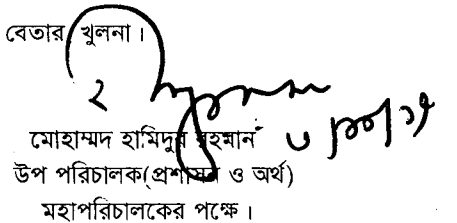 বেতার খুলনা।
মোহাম্মদ হামিদুর রহমান
উপ পরিচালক(প্রশাসন ও অর্থ)
মহাপরিচালকের পক্ষে।